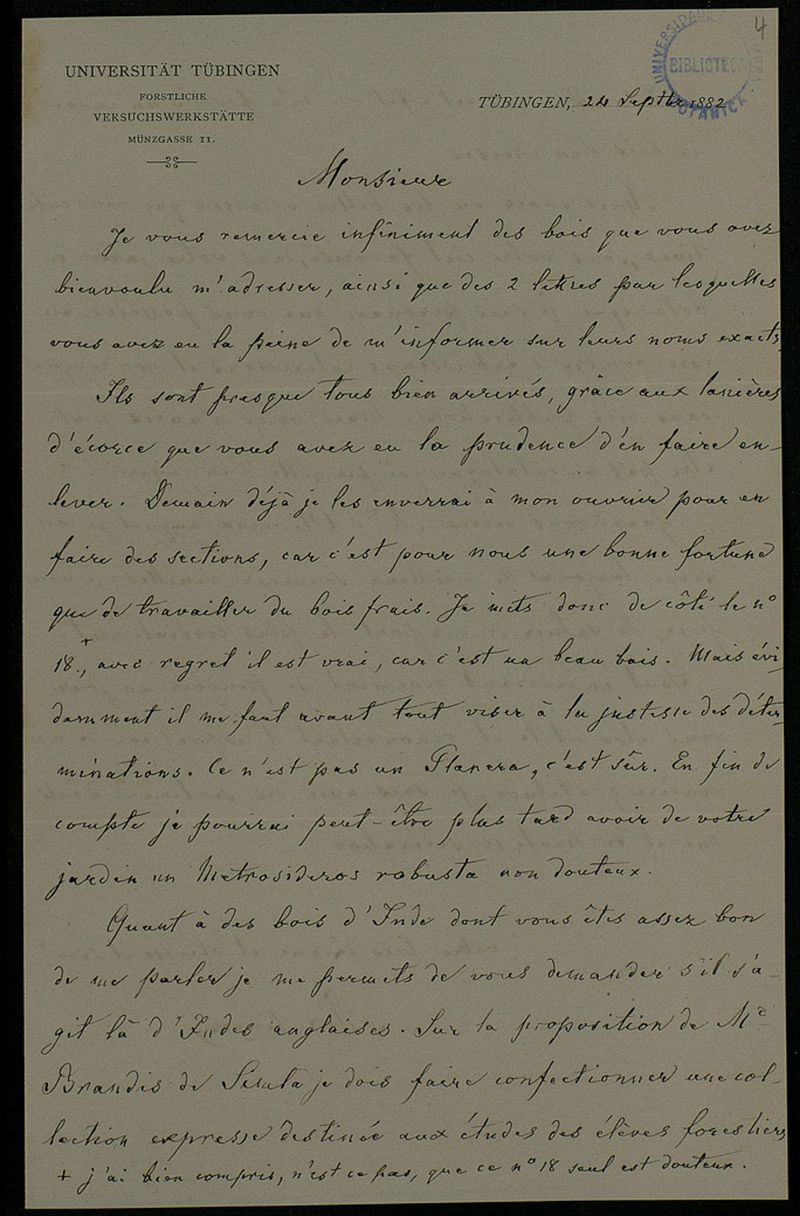 4
UNIVERSITÄT TÜBINGEN
FORSTLICHE
VERSUCHSWERKSTÄTTE
MÜNZGASSE 11.
BIBLIOTECA
BOTANICA
TÜBINGEN, 24 Septbr 1882
Monsieur
Je vous remercie infiniment des bois que vous avez
bienvoulu m'adresser, ainsi que des 2 lettres par lesquelles
vous avez eu la peine de m'informer sur leurs noms exacts.
Ils sont presque tous bien arrivés, grâce aux lanières
d'écorce que vous avez eu la prudence d'en faire en-
lever. Demain déjà je les enverrai à mon ouvrier pour en
faire des sections, car c'est pour nous une bonne fortune
que de travailler du bois frais. Je mets donc de côté le no
18.+, avec regret il est vrai, car c'est un beau bois. Mais évi
demment il me faut avant tout viser à la justesse des déter-
minations. Ce n'est pas un Planera, c'est sûr. En fin de
compte je pourrai peut-être plus tard avoir de votre
jardin un Metrosideros robusta non douteux.
Quant à des bois d'Inde dont vous êtes assez bon
de me parler je me permets de vous demander s'il s'a-
git là d'Indes anglaises. Sur la proposition de Mr
Brandis de Simla je dois faire confectionner une col-
lection expresse destinée aux études des élèves forestiers
+ j'ai bien compris, n'est ce pas, que ce no 18 seul est douteux.